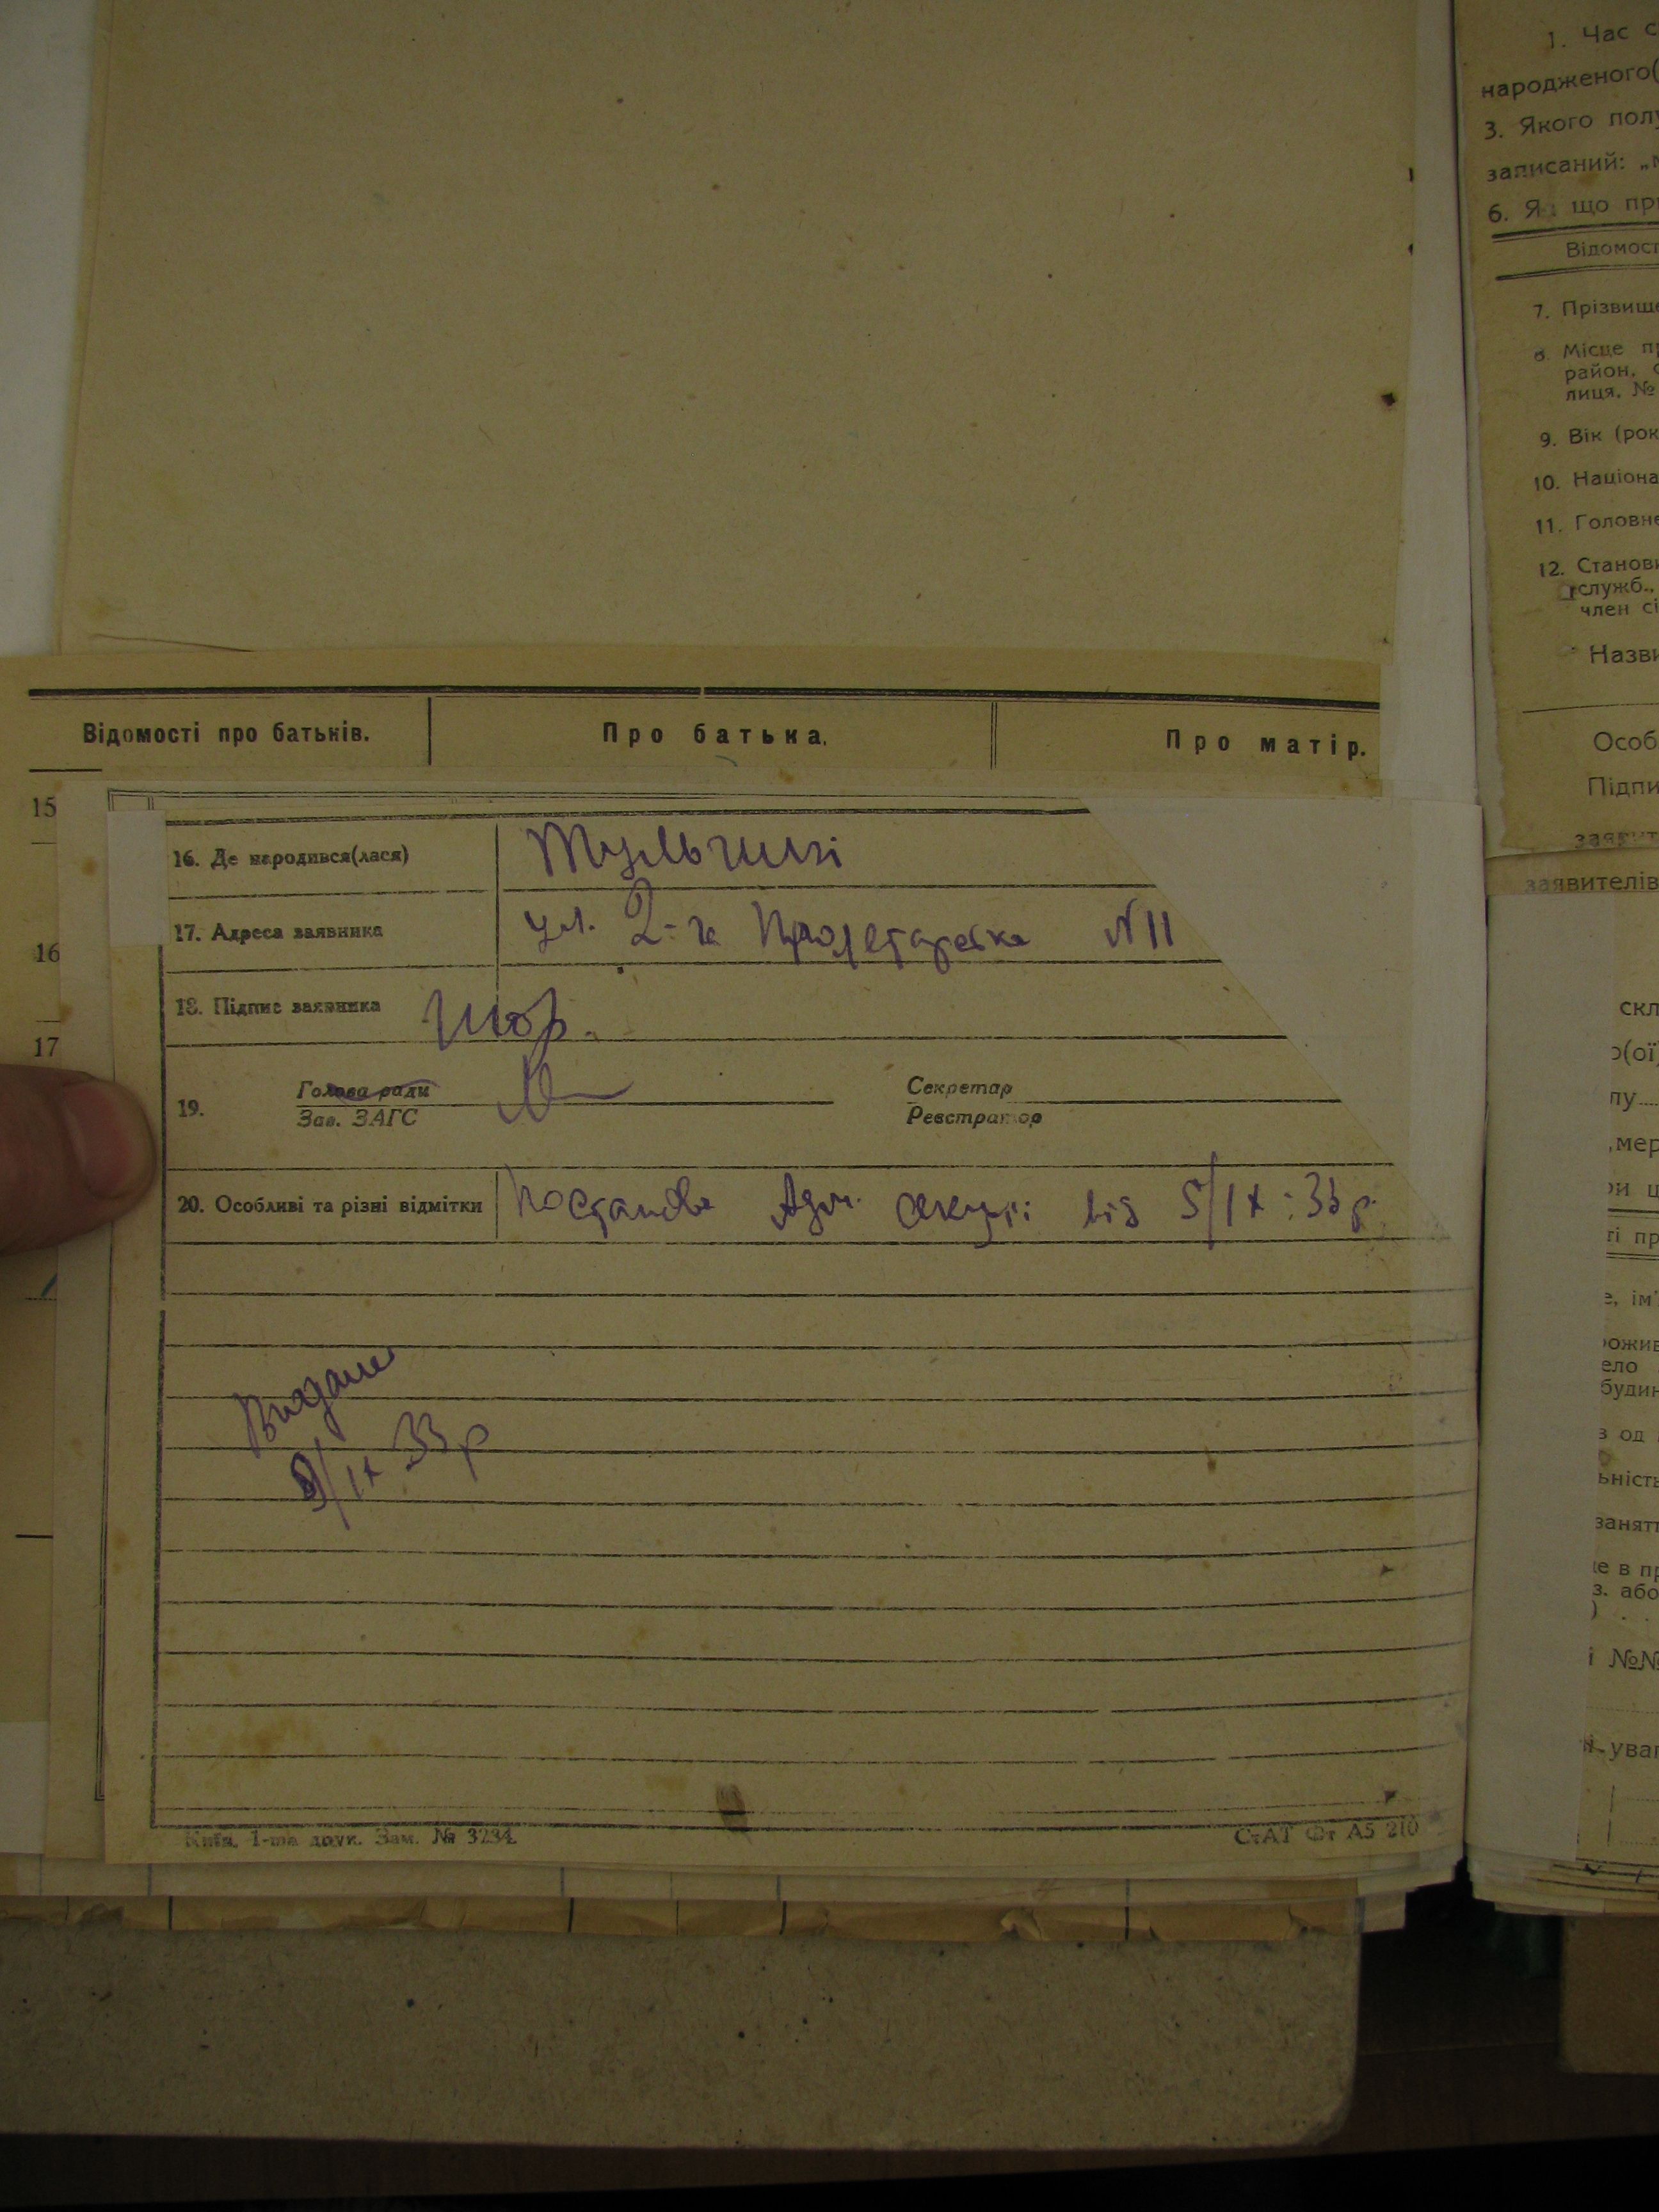 Відомості про батьків. Про батька. Про матір.
15
16. Де народився(лася) Тульчині
17. Адреса заявника ул. 2-га Пролетарська N 11
18. Підпис заявника Шор.
19. Голова ради Секретар
Зав. ЗАГС Реєстратор
20. Особливі та різні відмітки Постанова Адм. секції від 5/IX.33 р.
Видане
9/IX 33 р
Київ, 1-ша друк. Зам. № 3234. СтАТ Фт А5 210
16
17
1. Час с
народженого(
3. Якого полу
записаний: „м
6. Як що при
Відомост
7. Прізвище
8. Місце пр
район, с
лиця, №
9. Вік (рок
10. Націона
11. Головне
12. Станови
служб.,
член сі
Назви
Особ
Підпи
заявителів
скл
о(ої)
лу
,мер
ри ц
ті пр
е, ім'
рожив
ело
будин
з од
ьність
занятт
е в пр
з. або
) . .
і №№
уваг